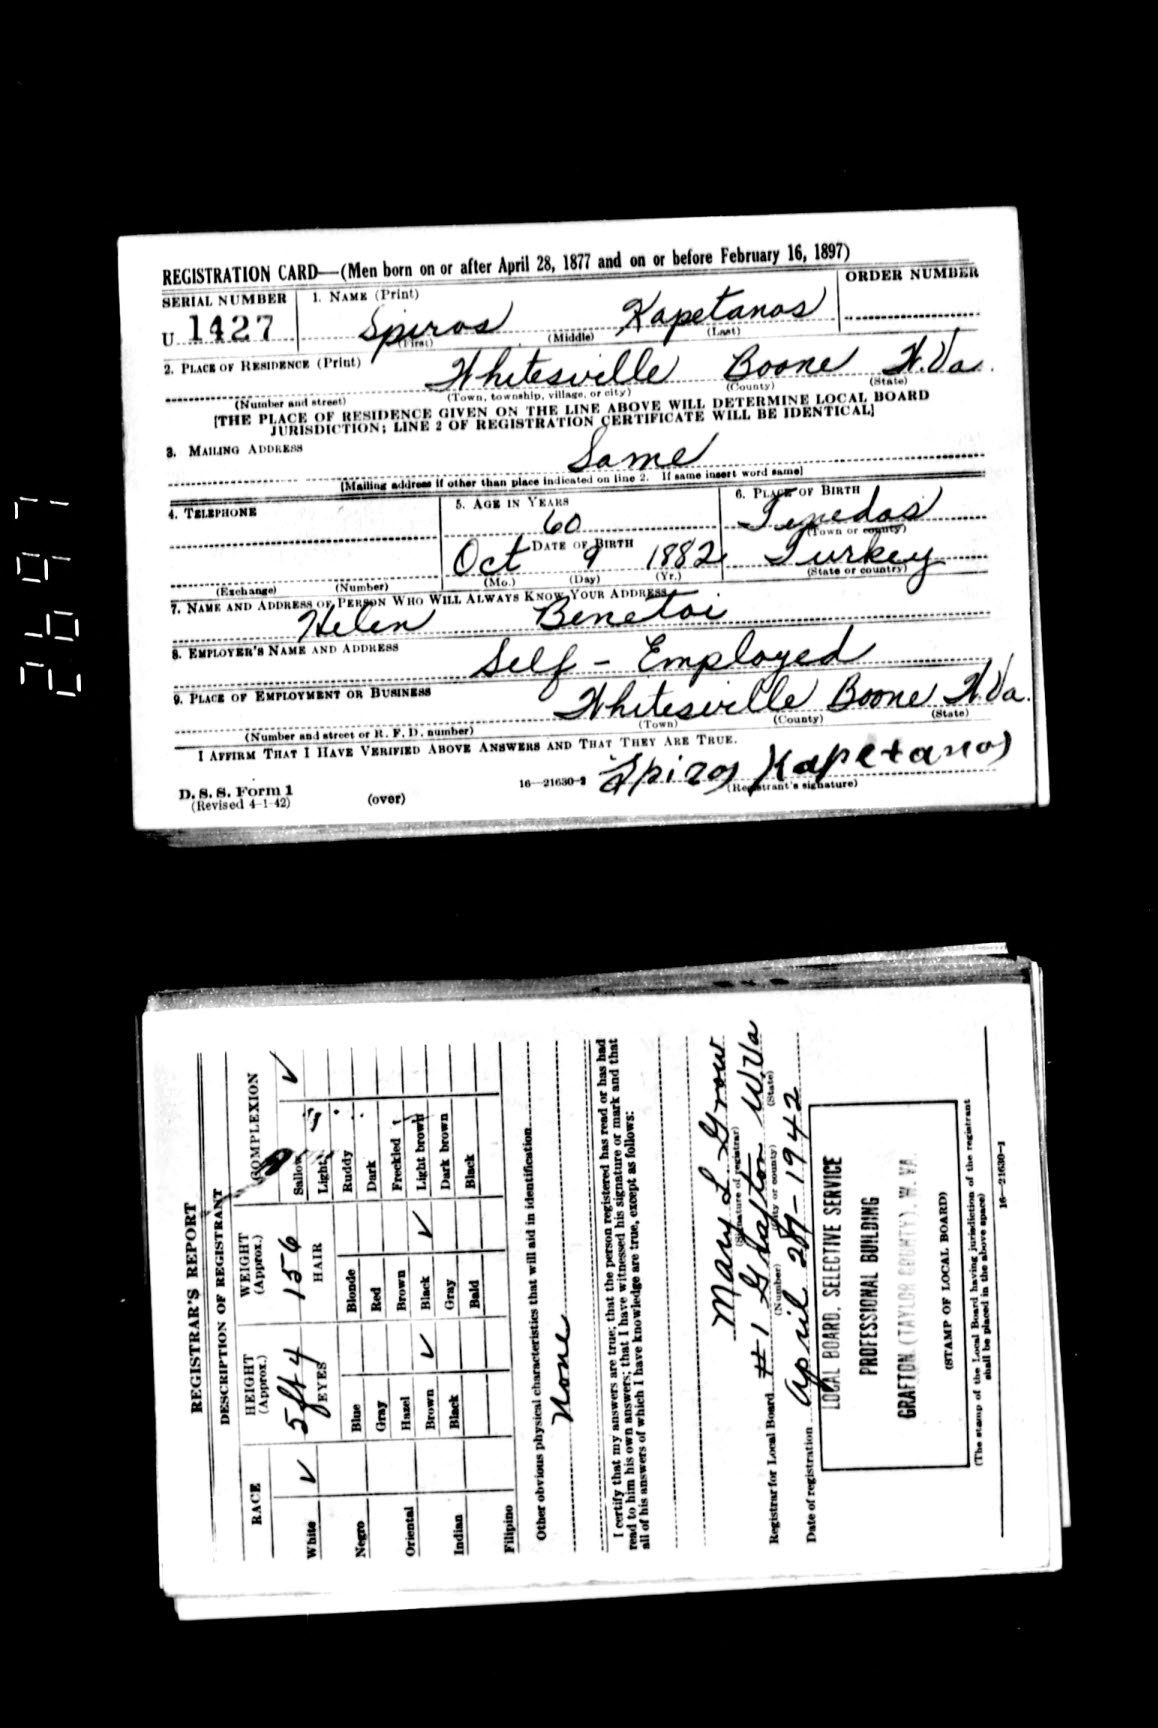 2697
REGISTRATION CARD—(Men born on or after April 28, 1877 and on or before February 16, 1897)
SERIAL NUMBER
1. NAME (Print)
ORDER NUMBER
U 1427
Spiros Kapetanos
(First) (Middle) (Last)
2. PLACE OF RESIDENCE (Print)
Whitesville Boone W.Va.
(Number and street) (Town, township, village, or city) (County) (State)
[THE PLACE OF RESIDENCE GIVEN ON THE LINE ABOVE WILL DETERMINE LOCAL BOARD
JURISDICTION; LINE 2 OF REGISTRATION CERTIFICATE WILL BE IDENTICAL]
3. MAILING ADDRESS
Same
[Mailing address if other than place indicated on line 2. If same insert word same]
4. TELEPHONE
5. AGE IN YEARS
6. PLACE OF BIRTH
60
Tenedos
(Town or county)
DATE OF BIRTH
Oct 9 1882
Turkey
(Exchange) (Number)
(Mo.) (Day) (Yr.)
(State or country)
7. NAME AND ADDRESS OF PERSON WHO WILL ALWAYS KNOW YOUR ADDRESS
Helen Benetoi
8. EMPLOYER'S NAME AND ADDRESS
Self - Employed
9. PLACE OF EMPLOYMENT OR BUSINESS
Whitesville Boone W.Va.
(Number and street or R. F. D. number) (Town) (County) (State)
I AFFIRM THAT I HAVE VERIFIED ABOVE ANSWERS AND THAT THEY ARE TRUE.
Spiros Kapetanos
D. S. S. Form 1
(Revised 4-1-42)
(over)
16—21630-2
(Registrant's signature)
REGISTRAR'S REPORT
DESCRIPTION OF REGISTRANT
RACE
HEIGHT
(Approx.)
WEIGHT
(Approx.)
COMPLEXION
5ft 4
156
EYES
HAIR
White ✓
Negro
Oriental
Indian
Filipino
Blue
Gray
Hazel
Brown ✓
Black
Blonde
Red
Brown
Black ✓
Gray
Bald
Sallow
Light
Ruddy
Dark
Freckled
Light brown
Dark brown
Black
Other obvious physical characteristics that will aid in identification
None
I certify that my answers are true; that the person registered has read or has had
read to him his own answers; that I have witnessed his signature or mark and that
all of his answers of which I have knowledge are true, except as follows:
Mary L Grow
(Signature of registrar)
Registrar for Local Board #1 Grafton W.Va
(Number) (City or county) (State)
Date of registration April 27-1942
LOCAL BOARD, SELECTIVE SERVICE
PROFESSIONAL BUILDING
GRAFTON (TAYLOR COUNTY), W. VA.
(STAMP OF LOCAL BOARD)
(The stamp of the Local Board having jurisdiction of the registrant
shall be placed in the above space)
16—21630-1